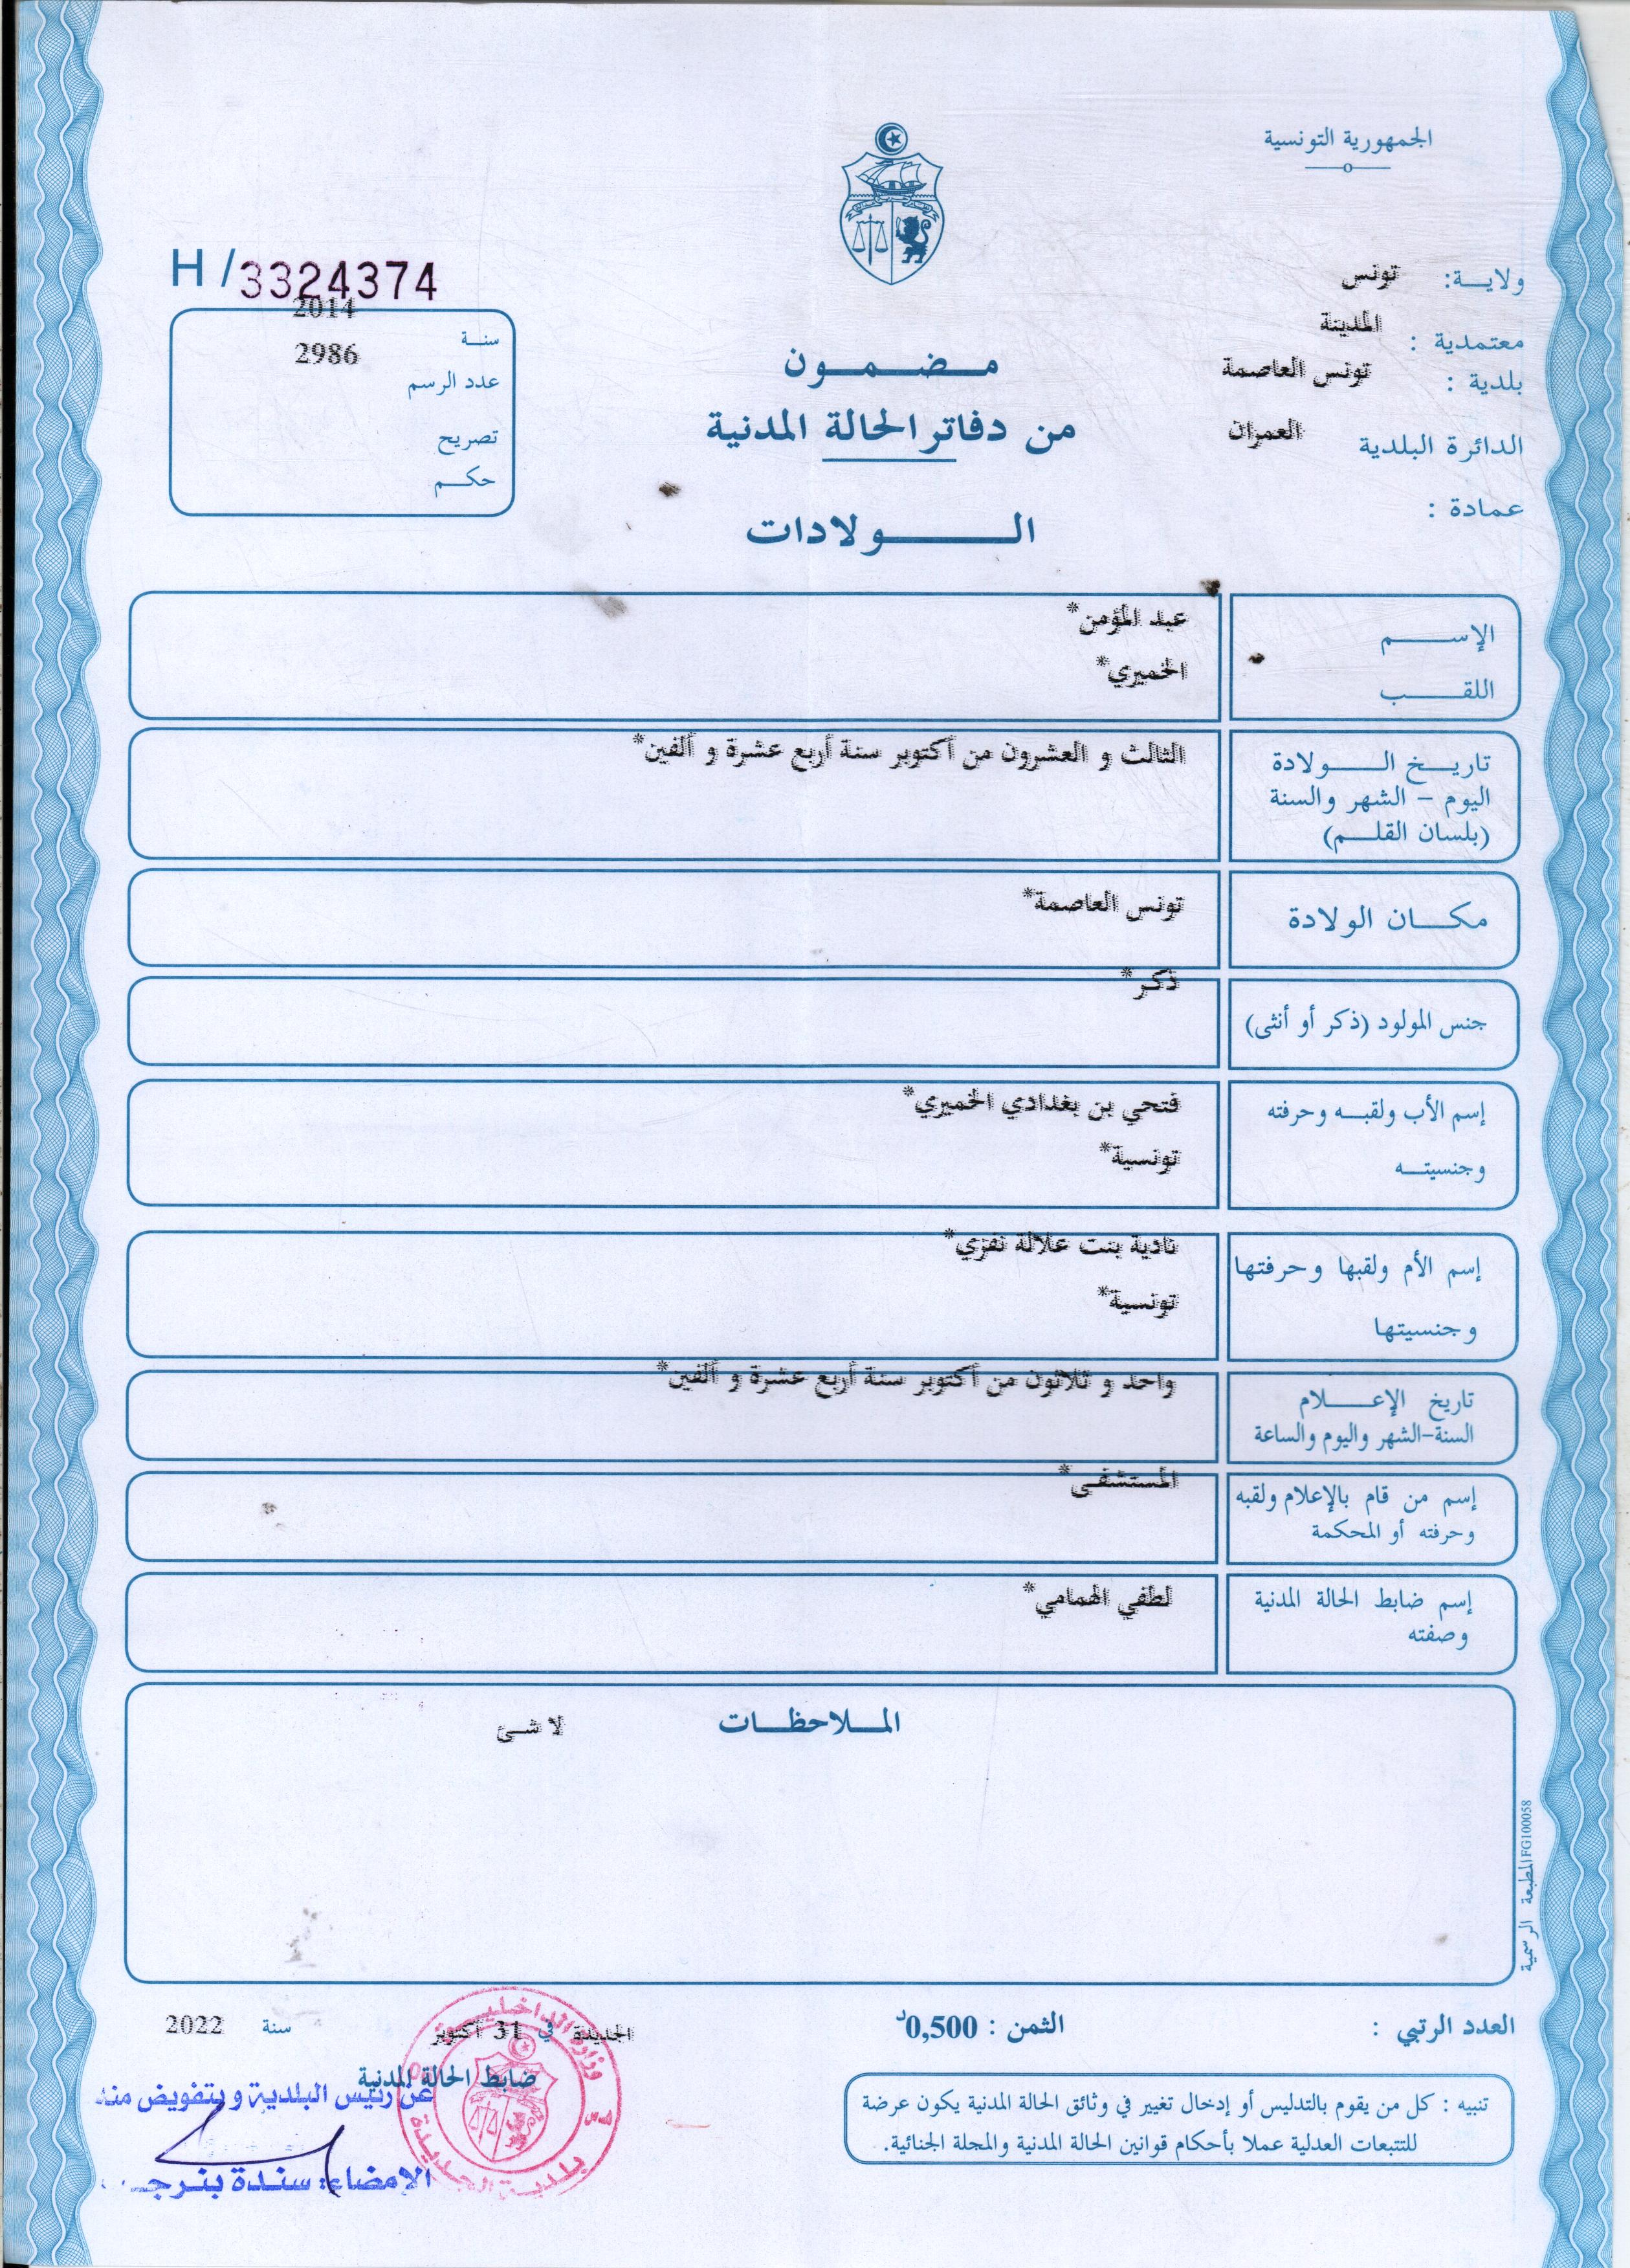 الجمهورية التونسية
ولاية: تونس
معتمدية : المدينة
بلدية : تونس العاصمة
الدائرة البلدية العمران
عمادة :
H /3324374
سنة 2014
عدد الرسم 2986
تصريح
حكم
مضمون
من دفاتر الحالة المدنية
الولادات
الإسم عبد المؤمن*
اللقب الخميري*
تاريخ الولادة الثالث و العشرون من أكتوبر سنة أربع عشرة و ألفين*
اليوم - الشهر والسنة
(بلسان القلم)
مكان الولادة تونس العاصمة*
جنس المولود (ذكر أو أنثى) ذكر*
إسم الأب ولقبه وحرفته فتحي بن بغدادي الخميري*
وجنسيته تونسية*
إسم الأم ولقبها وحرفتها نادية بنت علالة نفزي*
وجنسيتها تونسية*
تاريخ الإعلام واحد و ثلاثون من أكتوبر سنة أربع عشرة و ألفين*
السنة-الشهر واليوم والساعة
إسم من قام بالإعلام ولقبه المستشفى*
وحرفته أو المحكمة
إسم ضابط الحالة المدنية لطفي الهمامي*
وصفته
الملاحظات لا شئ
المطبعة الرسمية FG100058
العدد الرتبي :
الثمن : 0,500د
الجديدة في 31 أكتوبر سنة 2022
ضابط الحالة المدنية
عن رئيس البلدية و بتفويض منه
الإمضاء: سندة
وزارة الداخلية
بلدية الجديدة
تنبيه : كل من يقوم بالتدليس أو إدخال تغيير في وثائق الحالة المدنية يكون عرضة
للتتبعات العدلية عملا بأحكام قوانين الحالة المدنية والمجلة الجنائية.